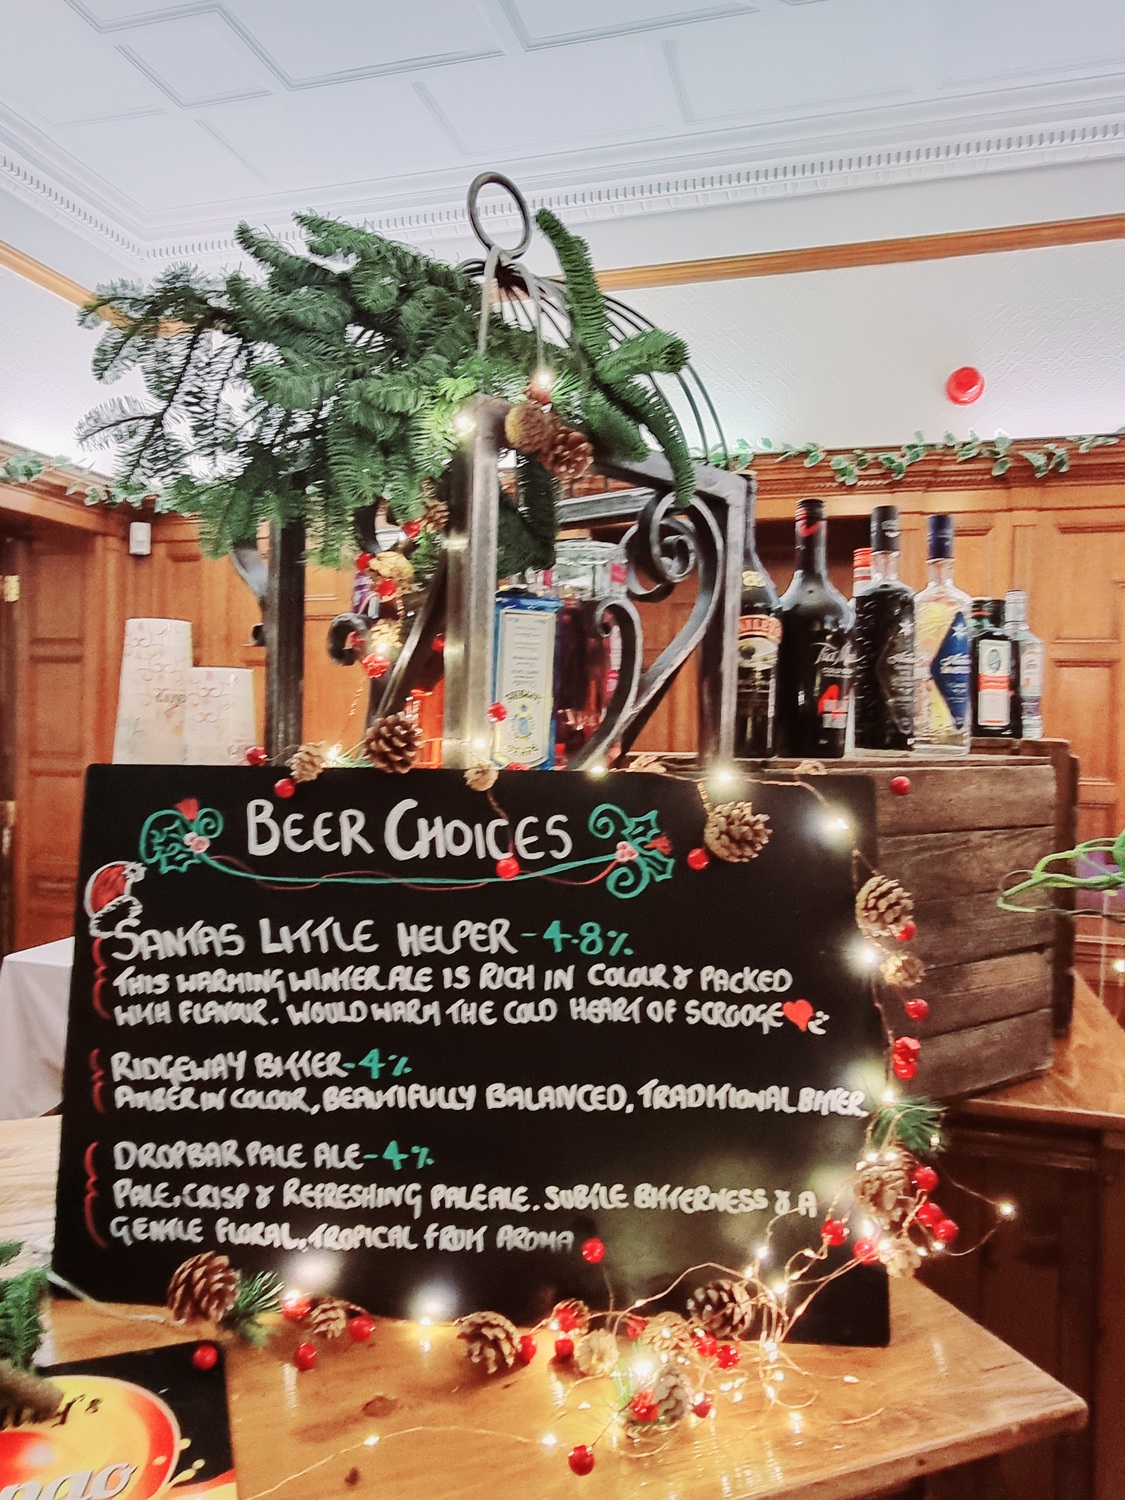 BEER CHOICES
SANTAS LITTLE HELPER - 4.8%
THIS WARMING WINTER ALE IS RICH IN COLOUR & PACKED
WITH FLAVOUR. WOULD WARM THE COLD HEART OF SCROOGE
RIDGEWAY BITTER - 4%
AMBER IN COLOUR, BEAUTIFULLY BALANCED, TRADITIONAL BITTER.
DROPBAR PALE ALE - 4%
PALE, CRISP & REFRESHING PALE ALE. SUBTLE BITTERNESS & A
GENTLE FLORAL, TROPICAL FRUIT AROMA